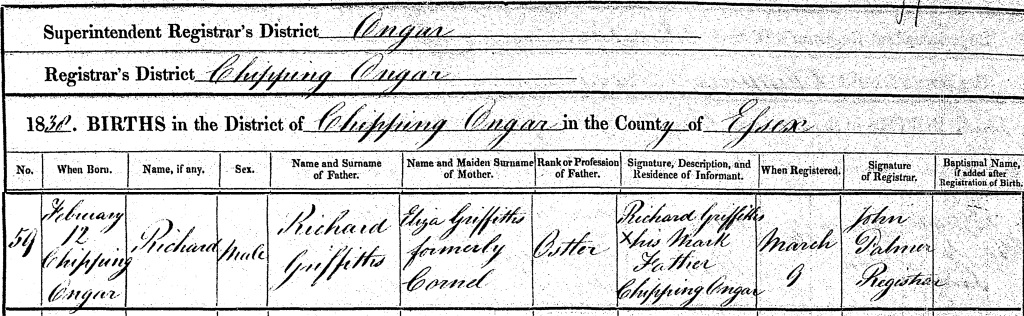 Superintendent Registrar's District Ongar
Registrar's District Chipping Ongar
1838. BIRTHS in the District of Chipping Ongar in the County of Essex
No. When Born. Name, if any. Sex. Name and Surname of Father. Name and Maiden Surname of Mother. Rank or Profession of Father. Signature, Description, and Residence of Informant. When Registered. Signature of Registrar. Baptismal Name, if added after Registration of Birth.
59
February
12
Chipping
Ongar
Richard
Male
Richard
Griffiths
Eliza Griffiths
formerly
Cornel
Ostler
Richard Griffiths
X his Mark
Father
Chipping Ongar
March
9
John
Palmer
Registrar